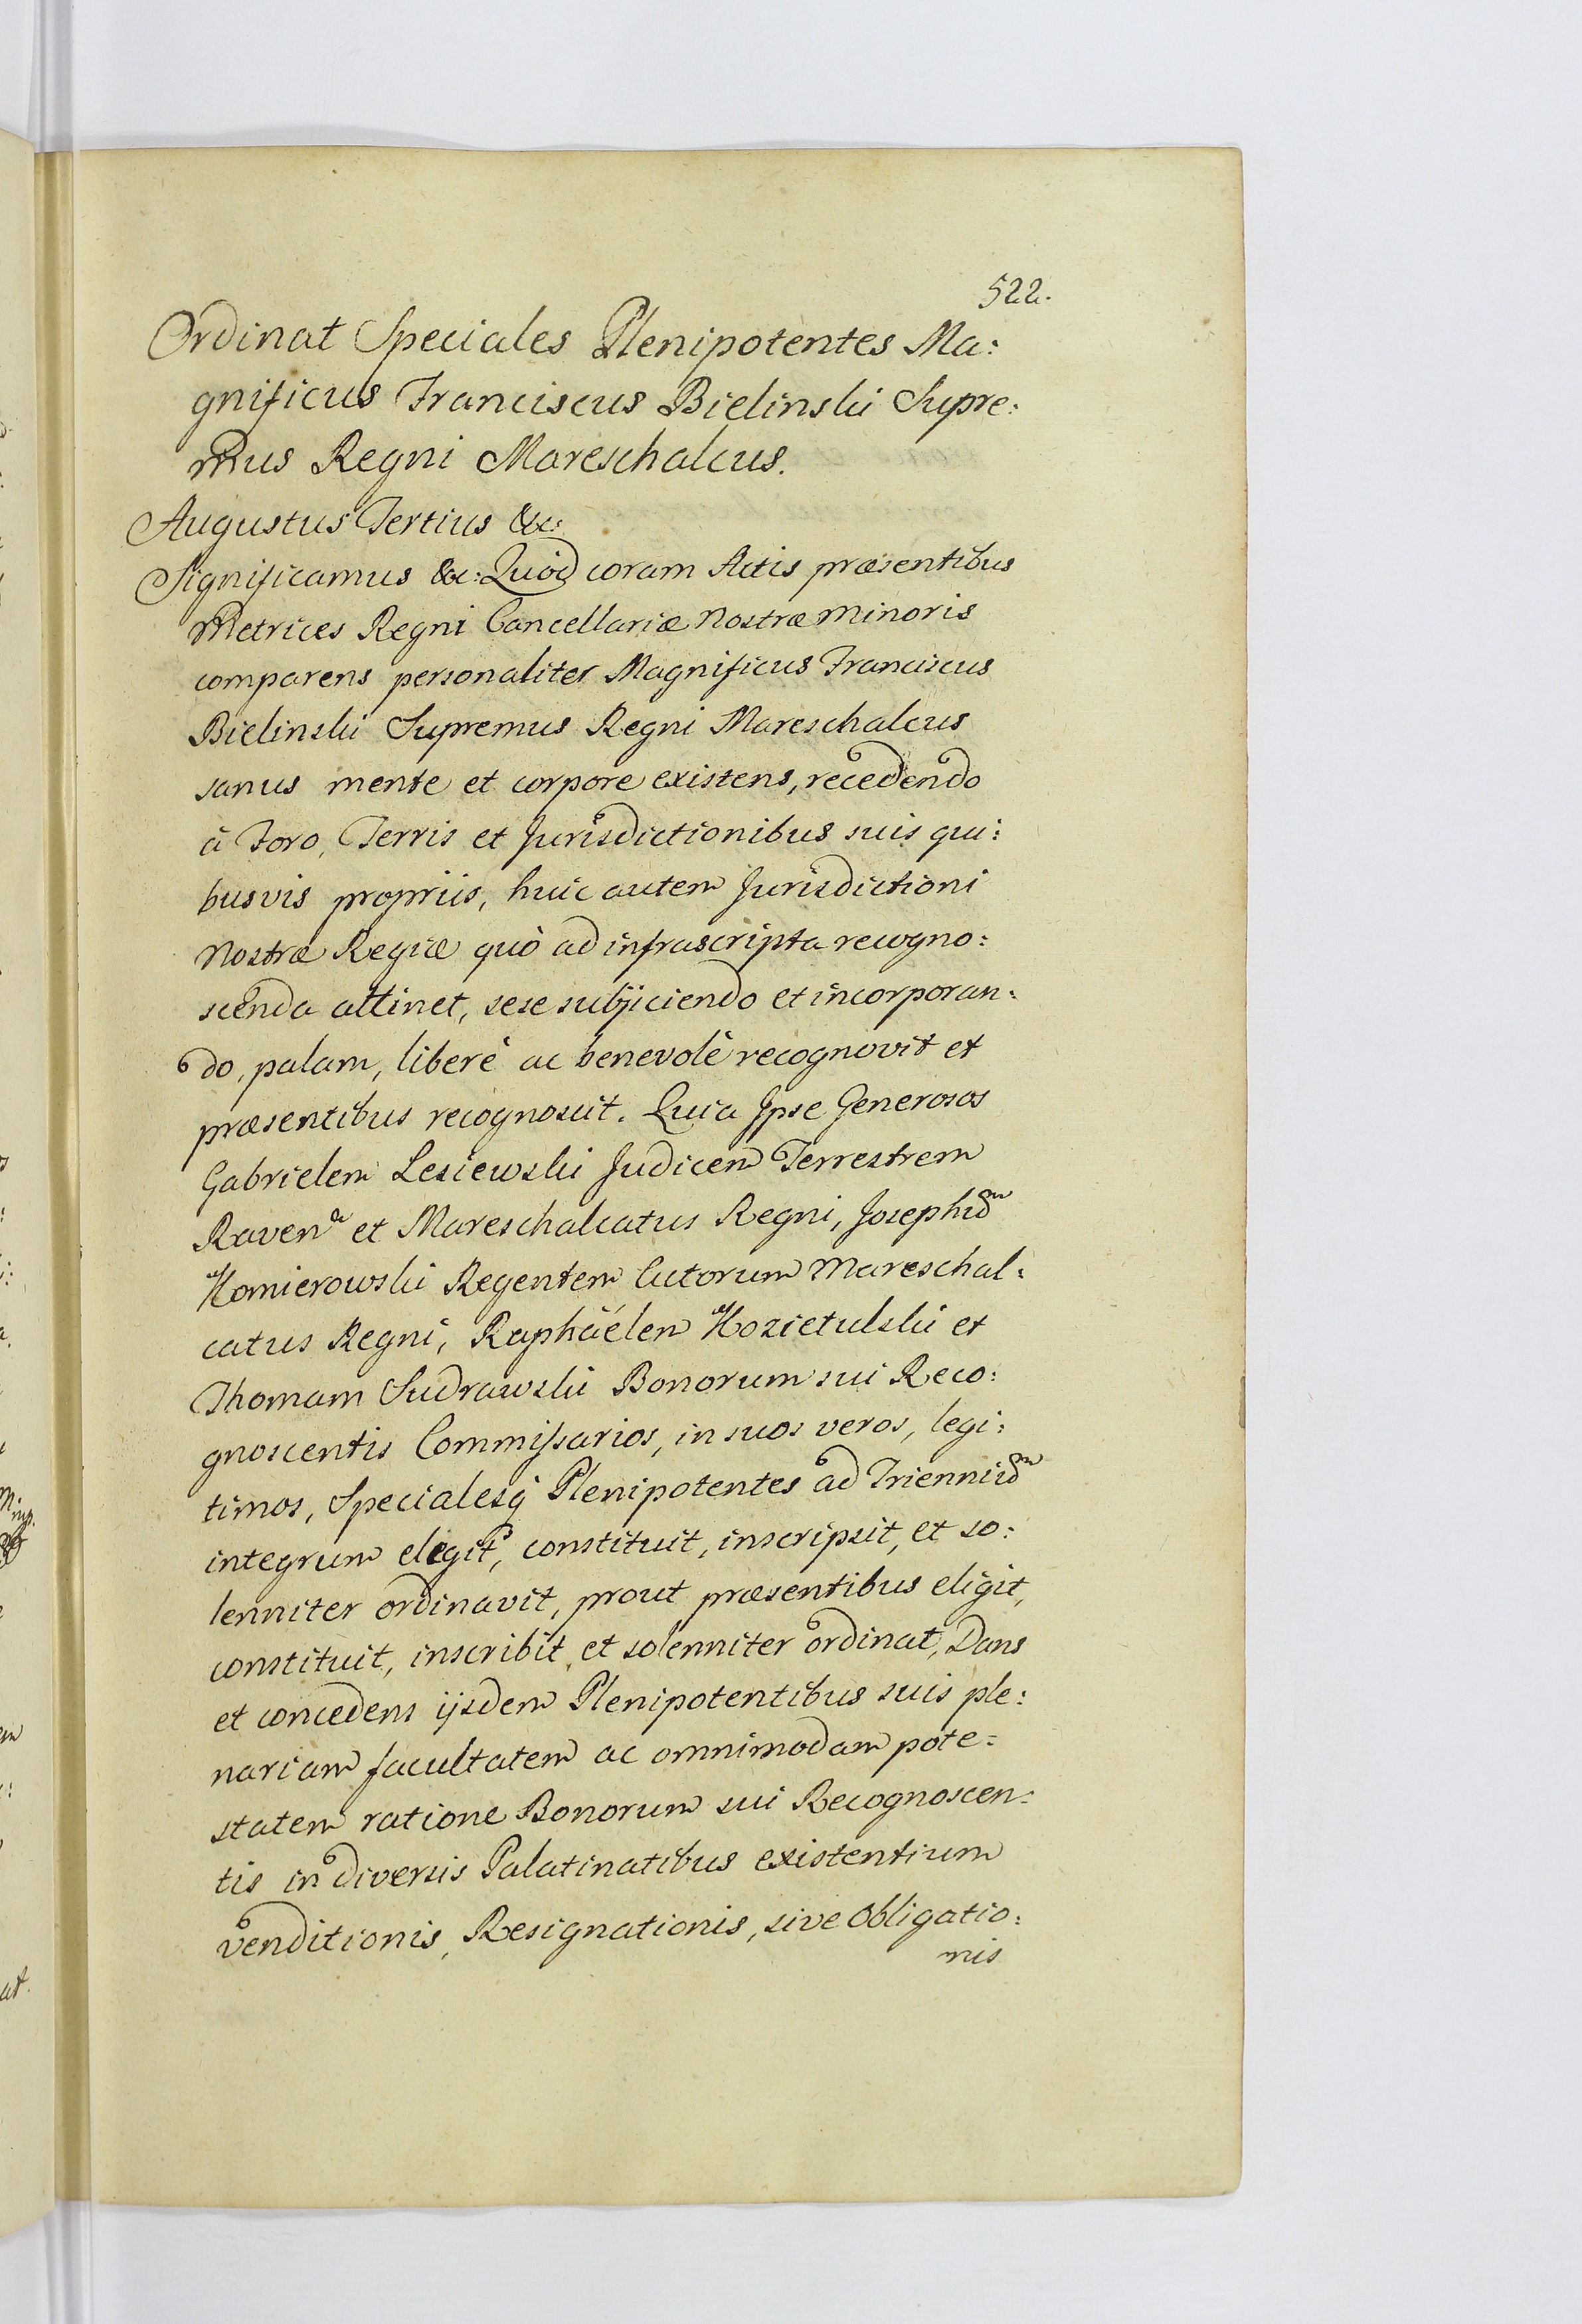 522.
Ordinat Speciales Plenipotentes Ma:
gnificus Franciscus Bielinski Supre:
mus Regni Mareschalcus.
Augustus Tertius &c:
Significamus &c: Quod coram Actis præsentibus
Metrices Regni Cancellariæ Nostræ Minoris
comparens personaliter Magnificus Franciscus
Bielinski Supremus Regni Mareschalcus
sanus mente et corpore existens, recedendo
à Foro, Terris et Jurisdictionibus suis qui:
busvis propriis, huic autem Jurisdictioni
Nostræ Regiæ quò ad infrascripta recogno:
scenda attinet, sese subjiciendo et incorporan:
do, palam, liberè ac benevolè recognovit et
præsentibus recognoscit. Quia Ipse Generosos
Gabrielem Lesiewski Judicem Terrestrem
Raven: et Mareschalcatus Regni, Josephum
Komierowski Regentem Actorum Mareschal:
catus Regni, Raphaëlem Kozietulski et
Thomam Sudrawski Bonorum sui Reco:
gnoscentis Commissarios, in suos veros, legi:
timos, Specialesq́ Plenipotentes ad Triennium
integrum elegit, constituit, inscripsit, et so:
lenniter ordinavit, prout præsentibus eligit,
constituit, inscribit et solenniter ordinat, Dans
et concedens ijsdem Plenipotentibus suis ple:
nariam facultatem ac omnimodam pote:
statem ratione Bonorum sui Recognoscen:
tis in diversis Palatinatibus existentium
venditionis, Resignationis, sive Obligatio:
nis